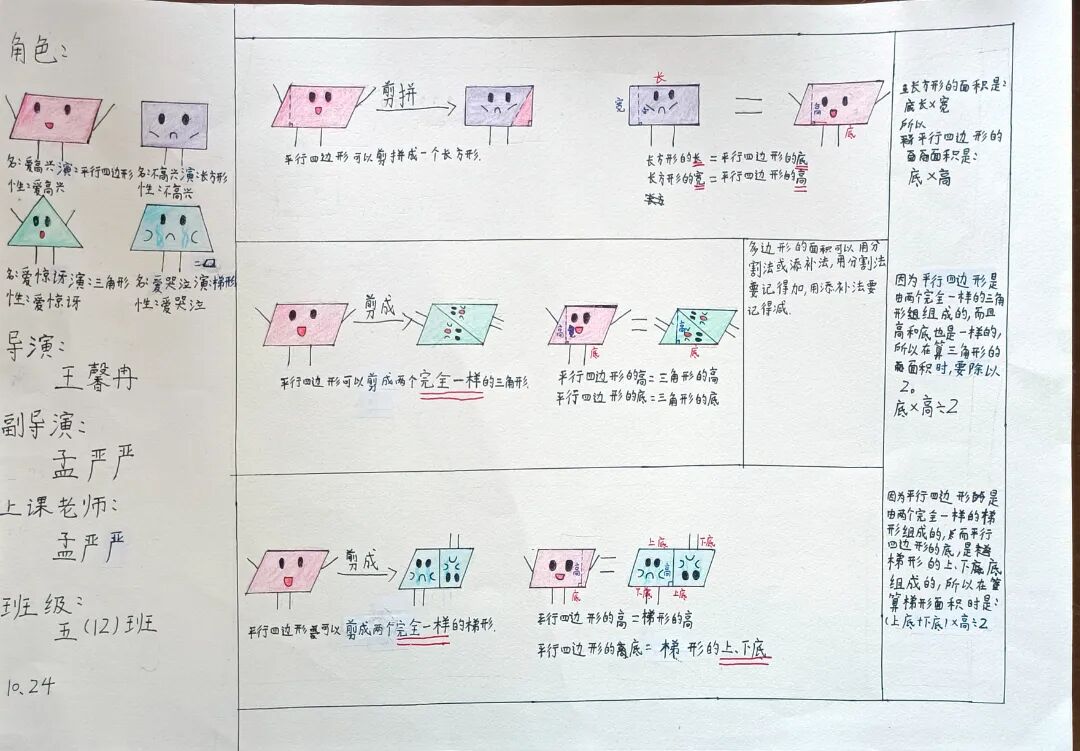 角色:
名:爱高兴演:平行四边形
性:爱高兴
名:不高兴演:长方形
性:不高兴
名:爱惊讶演:三角形
性:爱惊讶
名:爱哭泣演:梯形
性:爱哭泣
导演:
王馨冉
副导演:
孟严严
上课老师:
孟严严
班级:
五(12)班
10.24
剪拼
平行四边形可以剪拼成一个长方形.
长
宽
高
底
长方形的长=平行四边形的底
长方形的宽=平行四边形的高
长方形的面积是:
底长×宽
所以
平行四边形的
面积是:
底×高
剪成
平行四边形可以剪成两个完全一样的三角形.
高
底
高
底
平行四边形的高=三角形的高
平行四边形的底=三角形的底
多边形的面积可以用分
割法或添补法,用分割法
要记得加,用添补法要
记得减.
因为平行四边形是
由两个完全一样的三角
形组成的,而且
高和底也是一样的,
所以在算三角形的
面积时,要除以
2。
底×高÷2
剪成
平行四边形可以剪成两个完全一样的梯形.
高
底
上底
下底
高
下底
上底
平行四边形的高=梯形的高
平行四边形的底=梯形的上、下底
因为平行四边形是
由两个完全一样的梯
形组成的,而平行
四边形的底,是
梯形的上、下底
组成的,所以在
算梯形面积时是:
(上底+下底)×高÷2